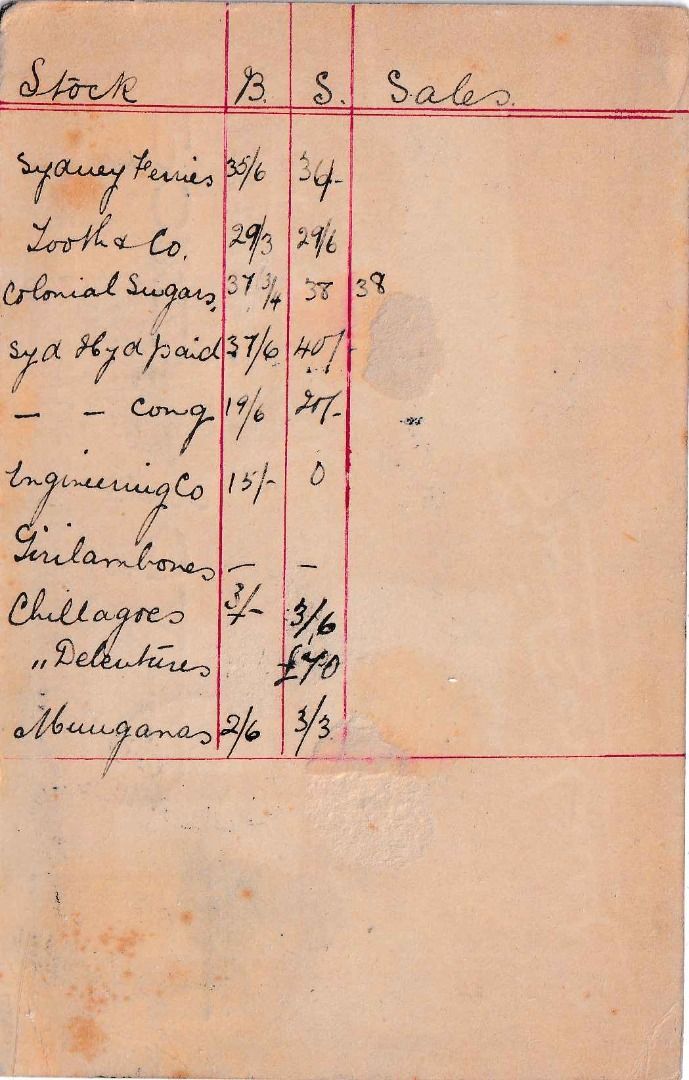 Stock B. S. Sales.
Sydney Ferries 35/6 36/-
Tooth & Co. 29/3 29/6
Colonial Sugars, 37 3/4 38 38
Syd Hyd paid 37/6 40/-
— — Cong 19/6 20/-
Engineering Co 15/- 0
Girilambones — —
Chillagoes 3/- 3/6
" Debentures £70
Munganas 2/6 3/3